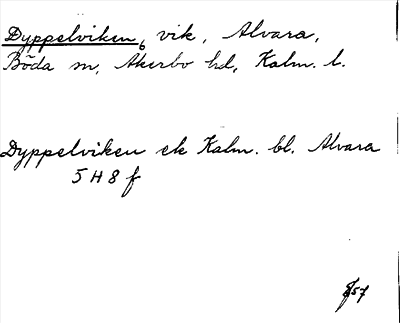 Dyppelviken, vik, Alvara,
Böda sn, Åkerbo hd, Kalm. l.
Dyppelviken ek Kalm. bl. Alvara
5 H 8 f
57